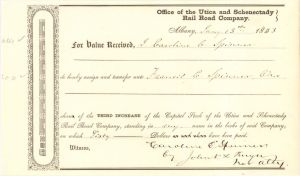 Office of the Utica and Schenectady
Rail Road Company.
Albany, Jany 13th 1853
For Value Received, I Caroline C Spinner
do hereby assign and transfer unto Francis E Spinner
shares of the THIRD INCREASE of the Capital Stock of the Utica and Schenectady
Rail Road Company, standing in my name in the books of said Company,
on which Sixty Dollars on each share have been paid.
Witness,
Caroline C Spinner
by John